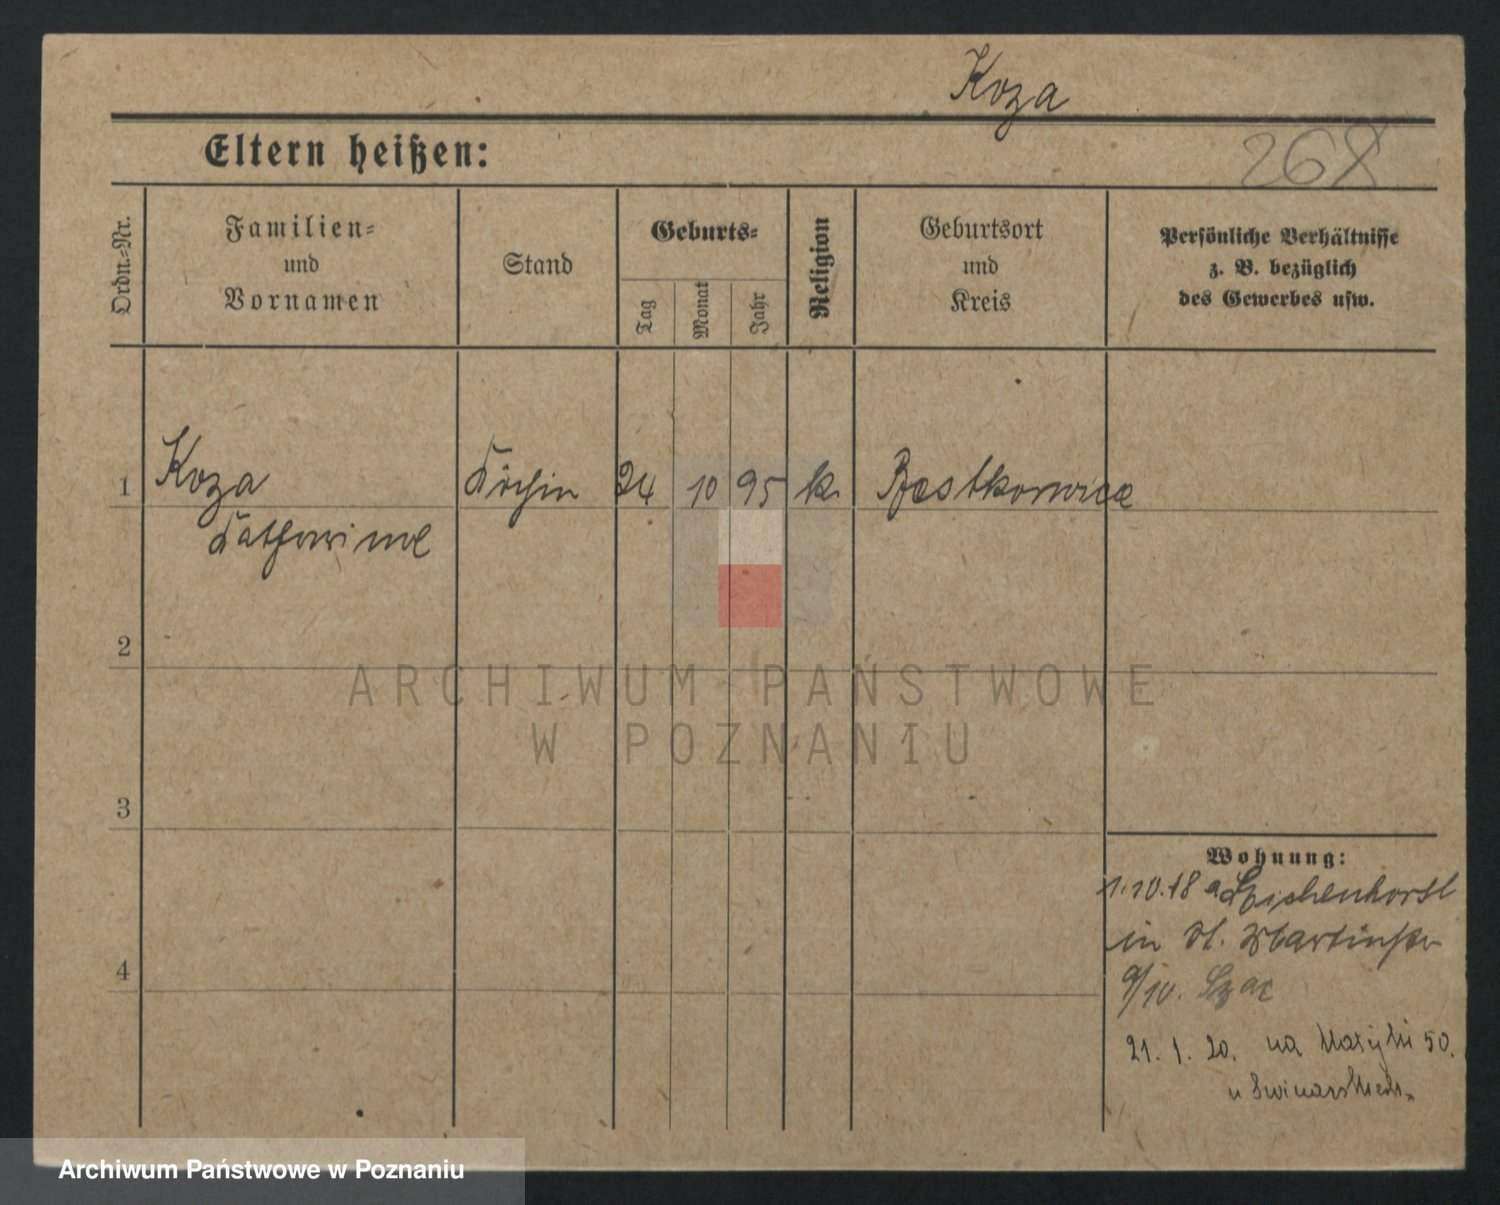 Koza
Eltern heißen:
268
Ordn.-Nr.
Familien- und Vornamen
Stand
Geburts-
Tag
Monat
Jahr
Religion
Geburtsort und Kreis
Persönliche Verhältnisse
z. B. bezüglich
des Gewerbes usw.
1 Koza Köchin 24 10 95 k.
Katharina
2
3
4
Wohnung:
1.10.18 a Eichenhorst
in St. Martinstr
9/10.
21. 1. 20. na 50.
u
ARCHIWUM PAŃSTWOWE
W POZNANIU
Archiwum Państwowe w Poznaniu